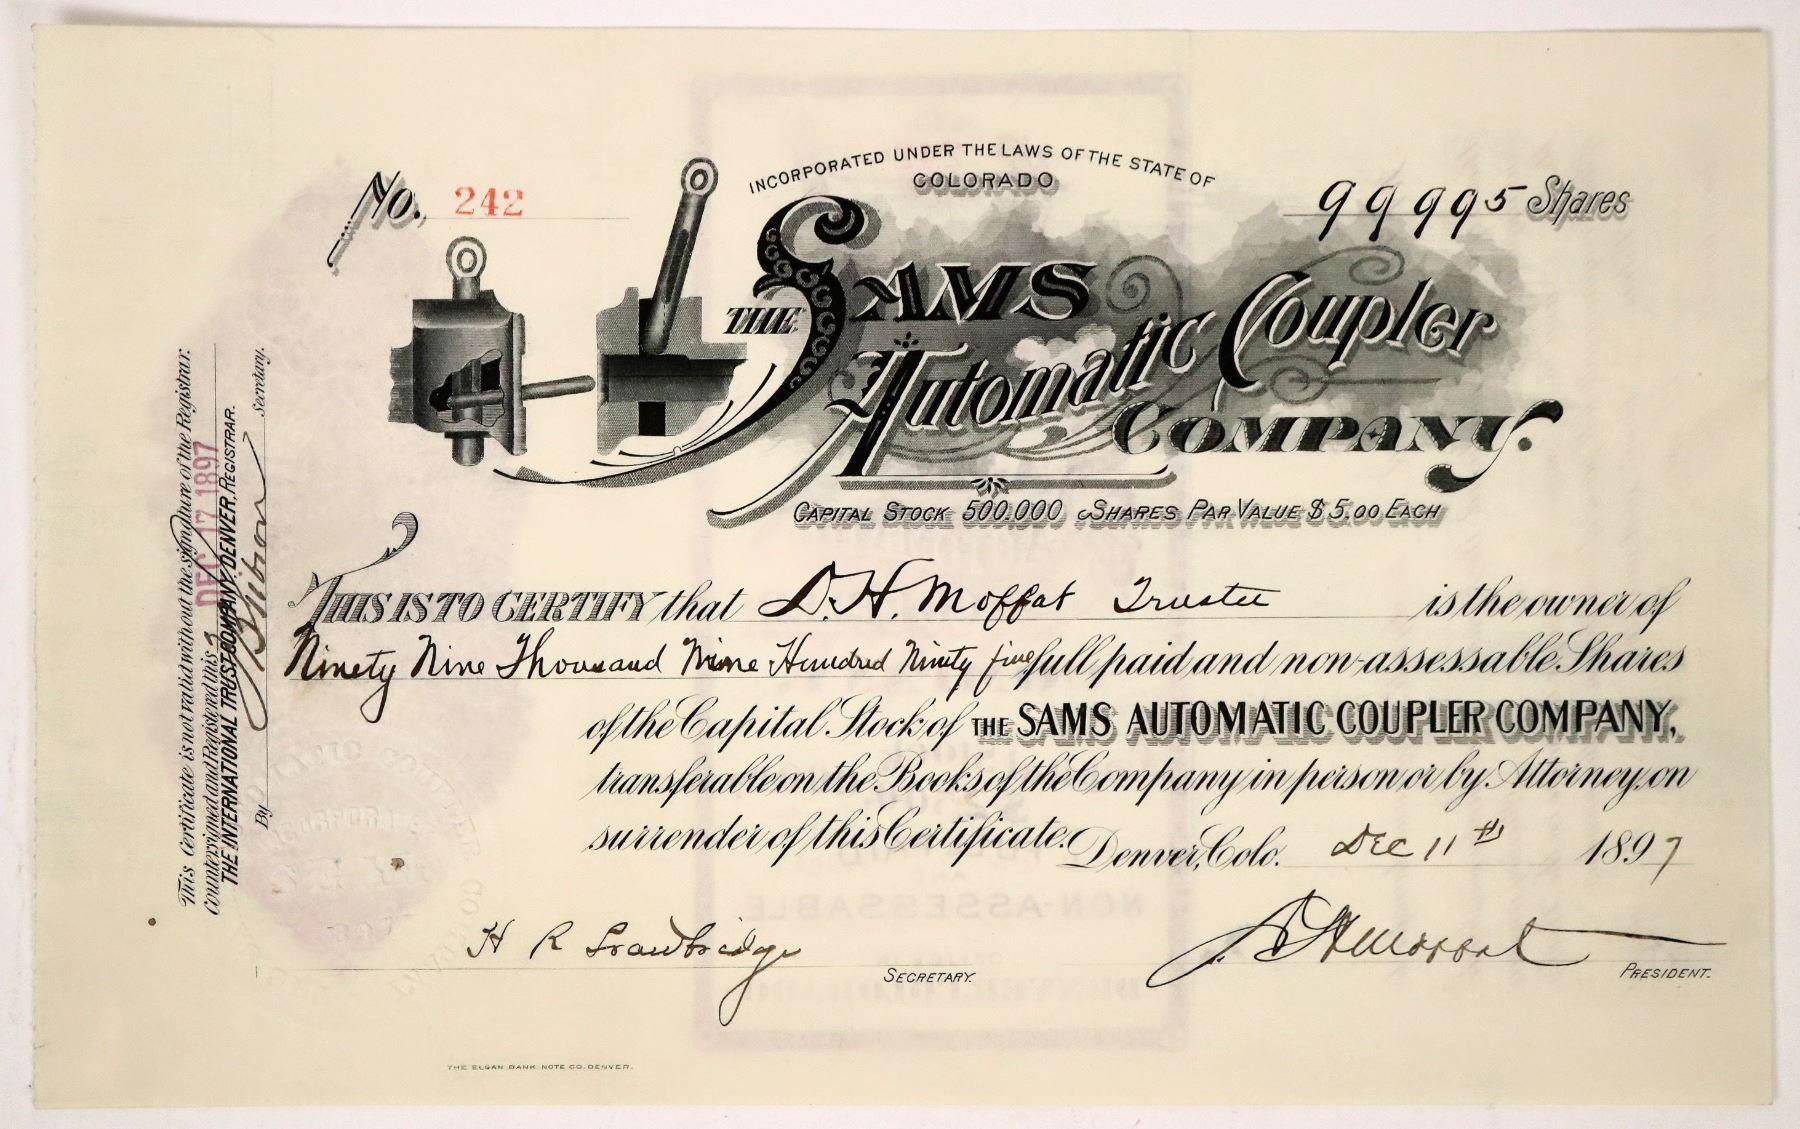 INCORPORATED UNDER THE LAWS OF THE STATE OF
COLORADO
No. 242
99995 Shares
THE SAMS
AUTOMATIC COUPLER
COMPANY.
CAPITAL STOCK 500.000 SHARES PAR VALUE $5.00 EACH
THIS IS TO CERTIFY that D.H. Moffat Trustee is the owner of
Ninety Nine Thousand Nine Hundred Ninety five full paid and non-assessable Shares
of the Capital Stock of THE SAMS AUTOMATIC COUPLER COMPANY,
transferable on the Books of the Company in person or by Attorney, on
surrender of this Certificate.
Denver, Colo. Dec 11th 1897
H R
SECRETARY.
D H Moffat
PRESIDENT.
THE ELGAN BANK NOTE CO. DENVER.
This Certificate is not valid without the signature of the Registrar.
Countersigned and Registered this DEC 17 1897
THE INTERNATIONAL TRUST COMPANY, DENVER, REGISTRAR.
By Secretary.
NON-ASSESSABLE